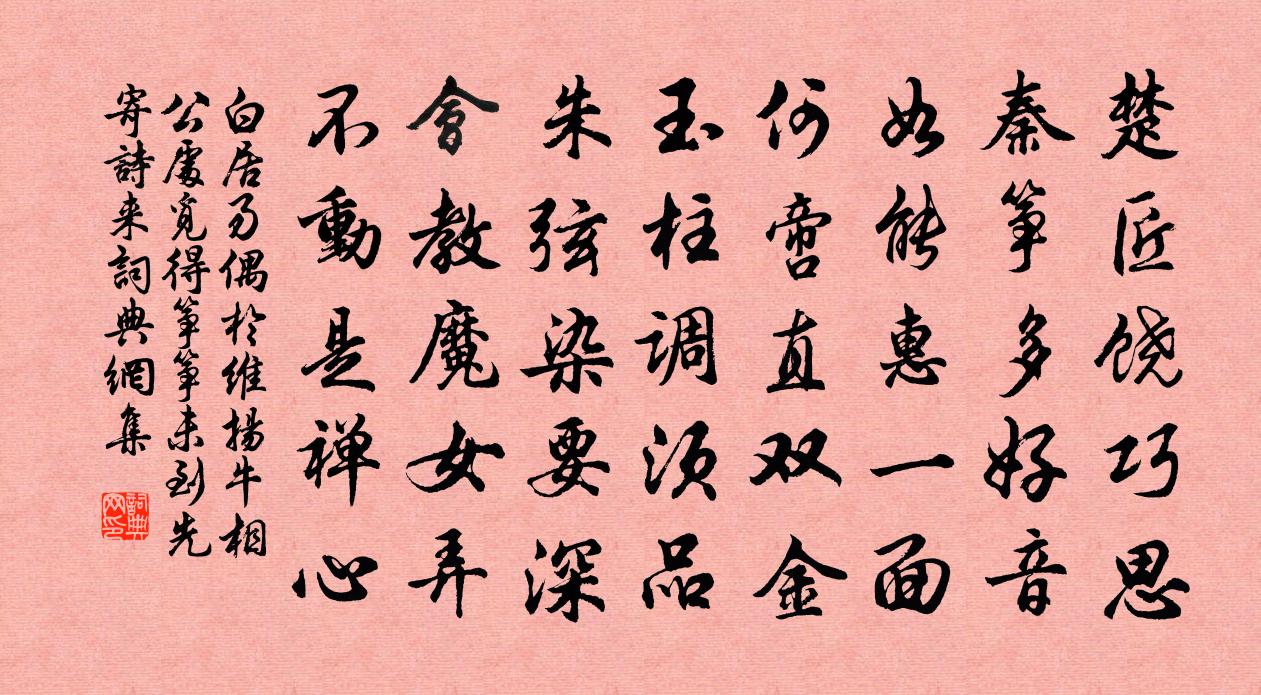 楚匠饶巧思
秦筝多好音
如能惠一面
何啻直双金
玉柱调须品
朱弦染要深
會教魔女弄
不動是禅心
白居易偶於維揚牛相
公處覓得筝筝未到先
寄詩来詞典網集
詞典
网印